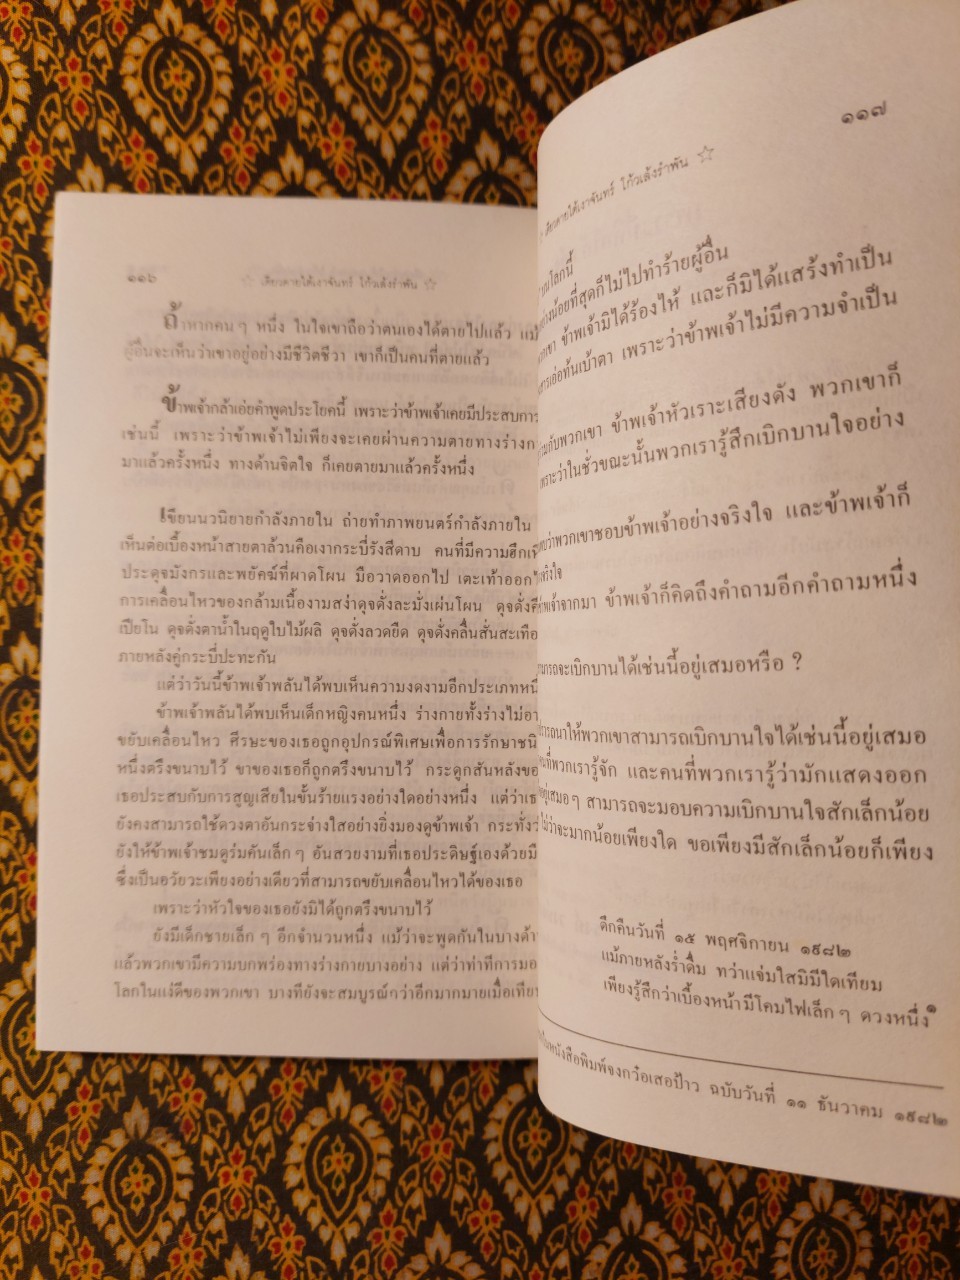 ๑๑๖ ☆ เดียวดายใต้เงาจันทร์ โก้วเล้งรำพัน ☆
ถ้าหากคนๆ หนึ่ง ในใจเขาถือว่าตนเองได้ตายไปแล้ว แม้
ผู้อื่นจะเห็นว่าเขาอยู่อย่างมีชีวิตชีวา เขาก็เป็นคนที่ตายแล้ว
ข้าพเจ้ากล้าเอ่ยคำพูดประโยคนี้ เพราะว่าข้าพเจ้าเคยมีประสบการ
เช่นนี้ เพราะว่าข้าพเจ้าไม่เพียงจะเคยผ่านความตายทางร่างก
มาแล้วครั้งหนึ่ง ทางด้านจิตใจ ก็เคยตายมาแล้วครั้งหนึ่ง
เขียนนวนิยายกำลังภายใน ถ่ายทำภาพยนตร์กำลังภายใน
เห็นต่อเบื้องหน้าสายตาล้วนคือเงากระบี่รังสีดาบ คนที่มีความฮึกเหิ
ประดุจมังกรและพยัคฆ์ที่ผาดโผน มือวาดออกไป เตะเท้าออกไ
การเคลื่อนไหวของกล้ามเนื้องามสง่าดุจดั่งละมั่งเผ่นโผน ดุจดั่ง
เปียโน ดุจดั่งตาน้ำในฤดูใบไม้ผลิ ดุจดั่งลวดยืด ดุจดั่งคลื่นสั่นสะเทือ
ภายหลังคู่กระบี่ปะทะกัน
แต่ว่าวันนี้ข้าพเจ้าพลันได้พบเห็นความงดงามอีกประเภทหนึ่
ข้าพเจ้าพลันได้พบเห็นเด็กหญิงคนหนึ่ง ร่างกายทั้งร่างไม่อา
ขยับเคลื่อนไหว ศีรษะของเธอถูกอุปกรณ์พิเศษเพื่อการรักษาชนิ
หนึ่งตรึงขนาบไว้ ขาของเธอก็ถูกตรึงขนาบไว้ กระดูกสันหลังขอ
เธอประสบกับการสูญเสียในขั้นร้ายแรงอย่างใดอย่างหนึ่ง แต่ว่าเธ
ยังคงสามารถใช้ดวงตาอันกระจ่างใสอย่างยิ่งมองดูข้าพเจ้า กระทั่ง
ยังให้ข้าพเจ้าชมดูร่มคันเล็กๆ อันสวยงามที่เธอประดิษฐ์เองด้วยมื
ซึ่งเป็นอวัยวะเพียงอย่างเดียวที่สามารถขยับเคลื่อนไหวได้ของเธอ
เพราะว่าหัวใจของเธอยังมิได้ถูกตรึงขนาบไว้
ยังมีเด็กชายเล็กๆ อีกจำนวนหนึ่ง แม้ว่าจะพูดกันในบางด้า
แล้วพวกเขามีความบกพร่องทางร่างกายบางอย่าง แต่ว่าท่าทีการมอ
โลกในแง่ดีของพวกเขา บางทียังจะสมบูรณ์กว่าอีกมากมายเมื่อเทีย
๑๑๗
เดียวดายใต้เงาจันทร์ โก้วเล้งรำพัน ☆
นโลกนี้
อย่างน้อยที่สุดก็ไม่ไปทำร้ายผู้อื่น
พวกเขา ข้าพเจ้ามิได้ร้องไห้ และก็มิได้แสร้งทำเป็น
สารเอ่อท้นเบ้าตา เพราะว่าข้าพเจ้าไม่มีความจำเป็น
กับพวกเขา ข้าพเจ้าหัวเราะเสียงดัง พวกเขาก็
เพราะว่าในชั่วขณะนั้นพวกเรารู้สึกเบิกบานใจอย่าง
ว่าพวกเขาชอบข้าพเจ้าอย่างจริงใจ และข้าพเจ้าก็
จริงใจ
ข้าพเจ้าจากมา ข้าพเจ้าก็คิดถึงคำถามอีกคำถามหนึ่ง
สามารถจะเบิกบานได้เช่นนี้อยู่เสมอหรือ ?
ปรารถนาให้พวกเขาสามารถเบิกบานใจได้เช่นนี้อยู่เสมอ
คนที่พวกเรารู้จัก และคนที่พวกเรารู้ว่ามักแสดงออก
อยู่เสมอๆ สามารถจะมอบความเบิกบานใจสักเล็กน้อย
ไม่ว่าจะมากน้อยเพียงใด ขอเพียงมีสักเล็กน้อยก็เพียง
ดึกคืนวันที่ ๑๕ พฤศจิกายน ๑๙๘๒
แม้ภายหลังร่ำดื่ม ทว่าแจ่มใสมิมีใดเทียม
เพียงรู้สึกว่าเบื้องหน้ามีโคมไฟเล็กๆ ดวงหนึ่ง๑
หนังสือพิมพ์จงกว๋อเสอป้าว ฉบับวันที่ ๑๑ ธันวาคม ๑๙๘๒